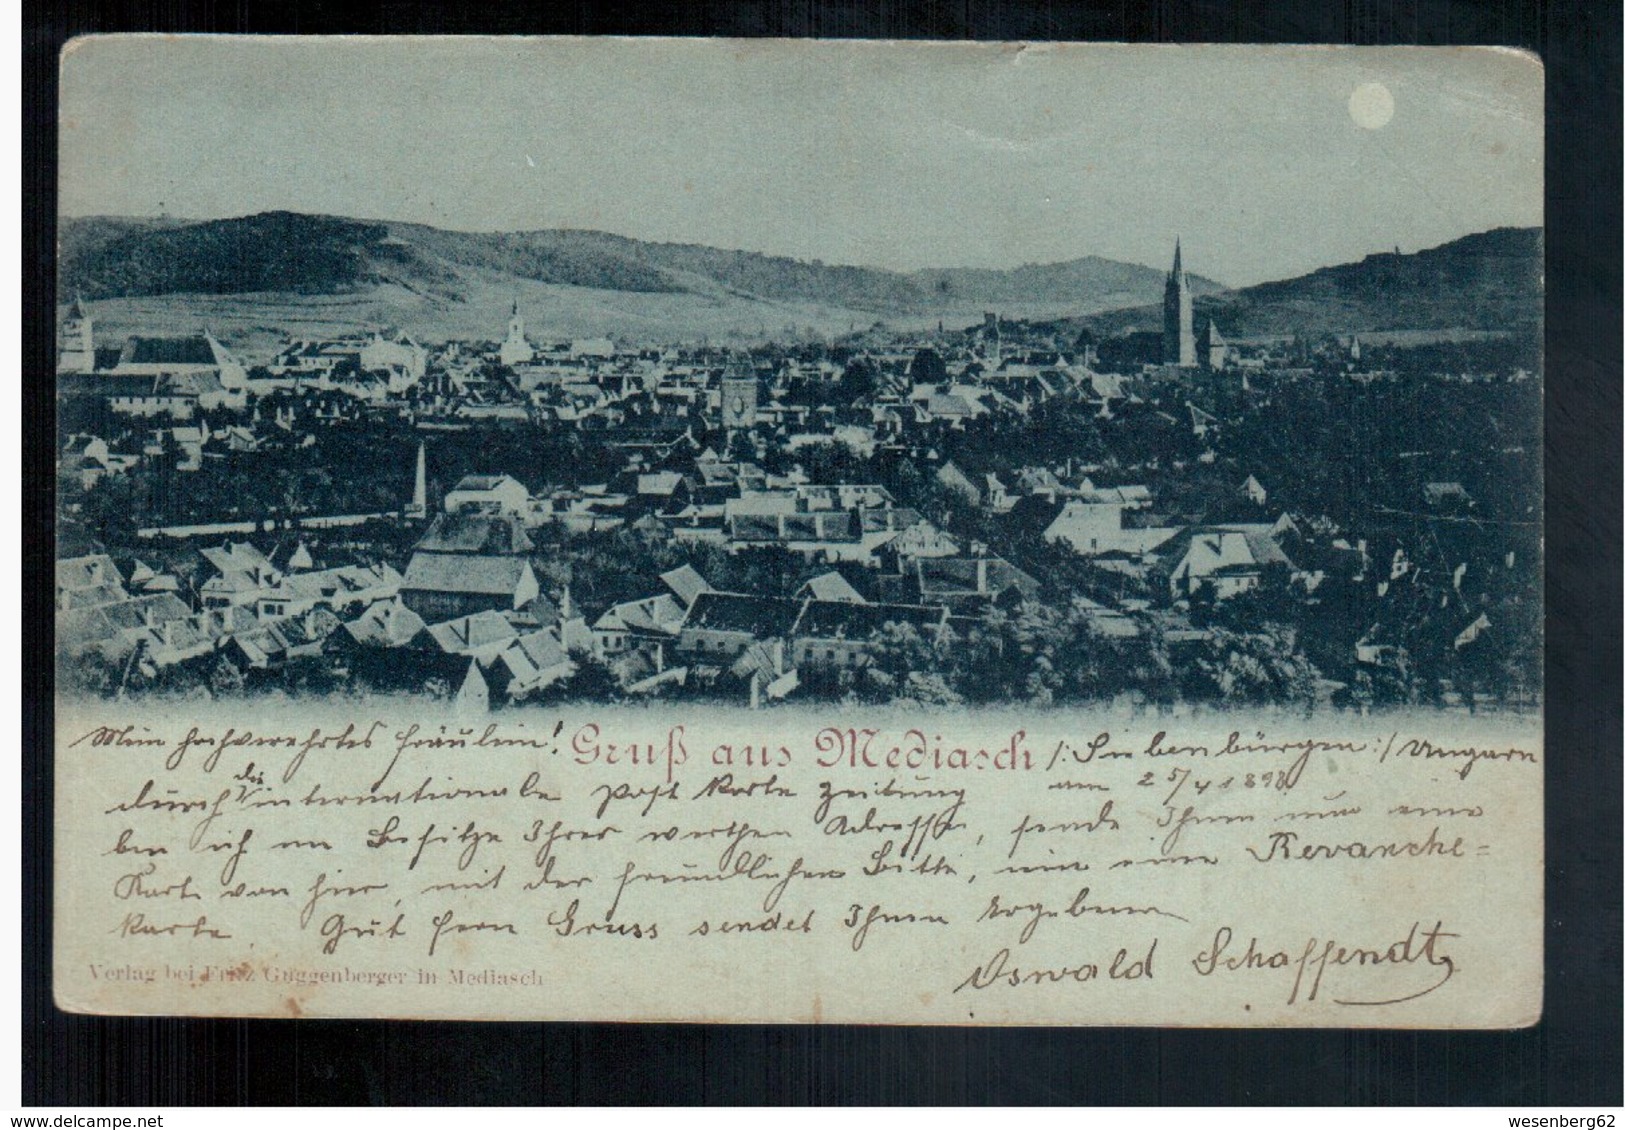 Mein hochverehrtes Fräulein! Gruß aus Mediasch /: Siebenbürgen :/ Ungarn
durch die internationale Post Karte Zeitung am 25/4 1898
bin ich im Besitze Ihrer werthen Adresse, sende Ihnen nur eine
Karte von hier, mit der freundlichen Bitte, um eine Revanche=
karte. Gut fern Gruss sendet Ihnen Ergebenen
Oswald Schaffendt
Verlag bei Fritz Guggenberger in Mediasch
wesenberg62